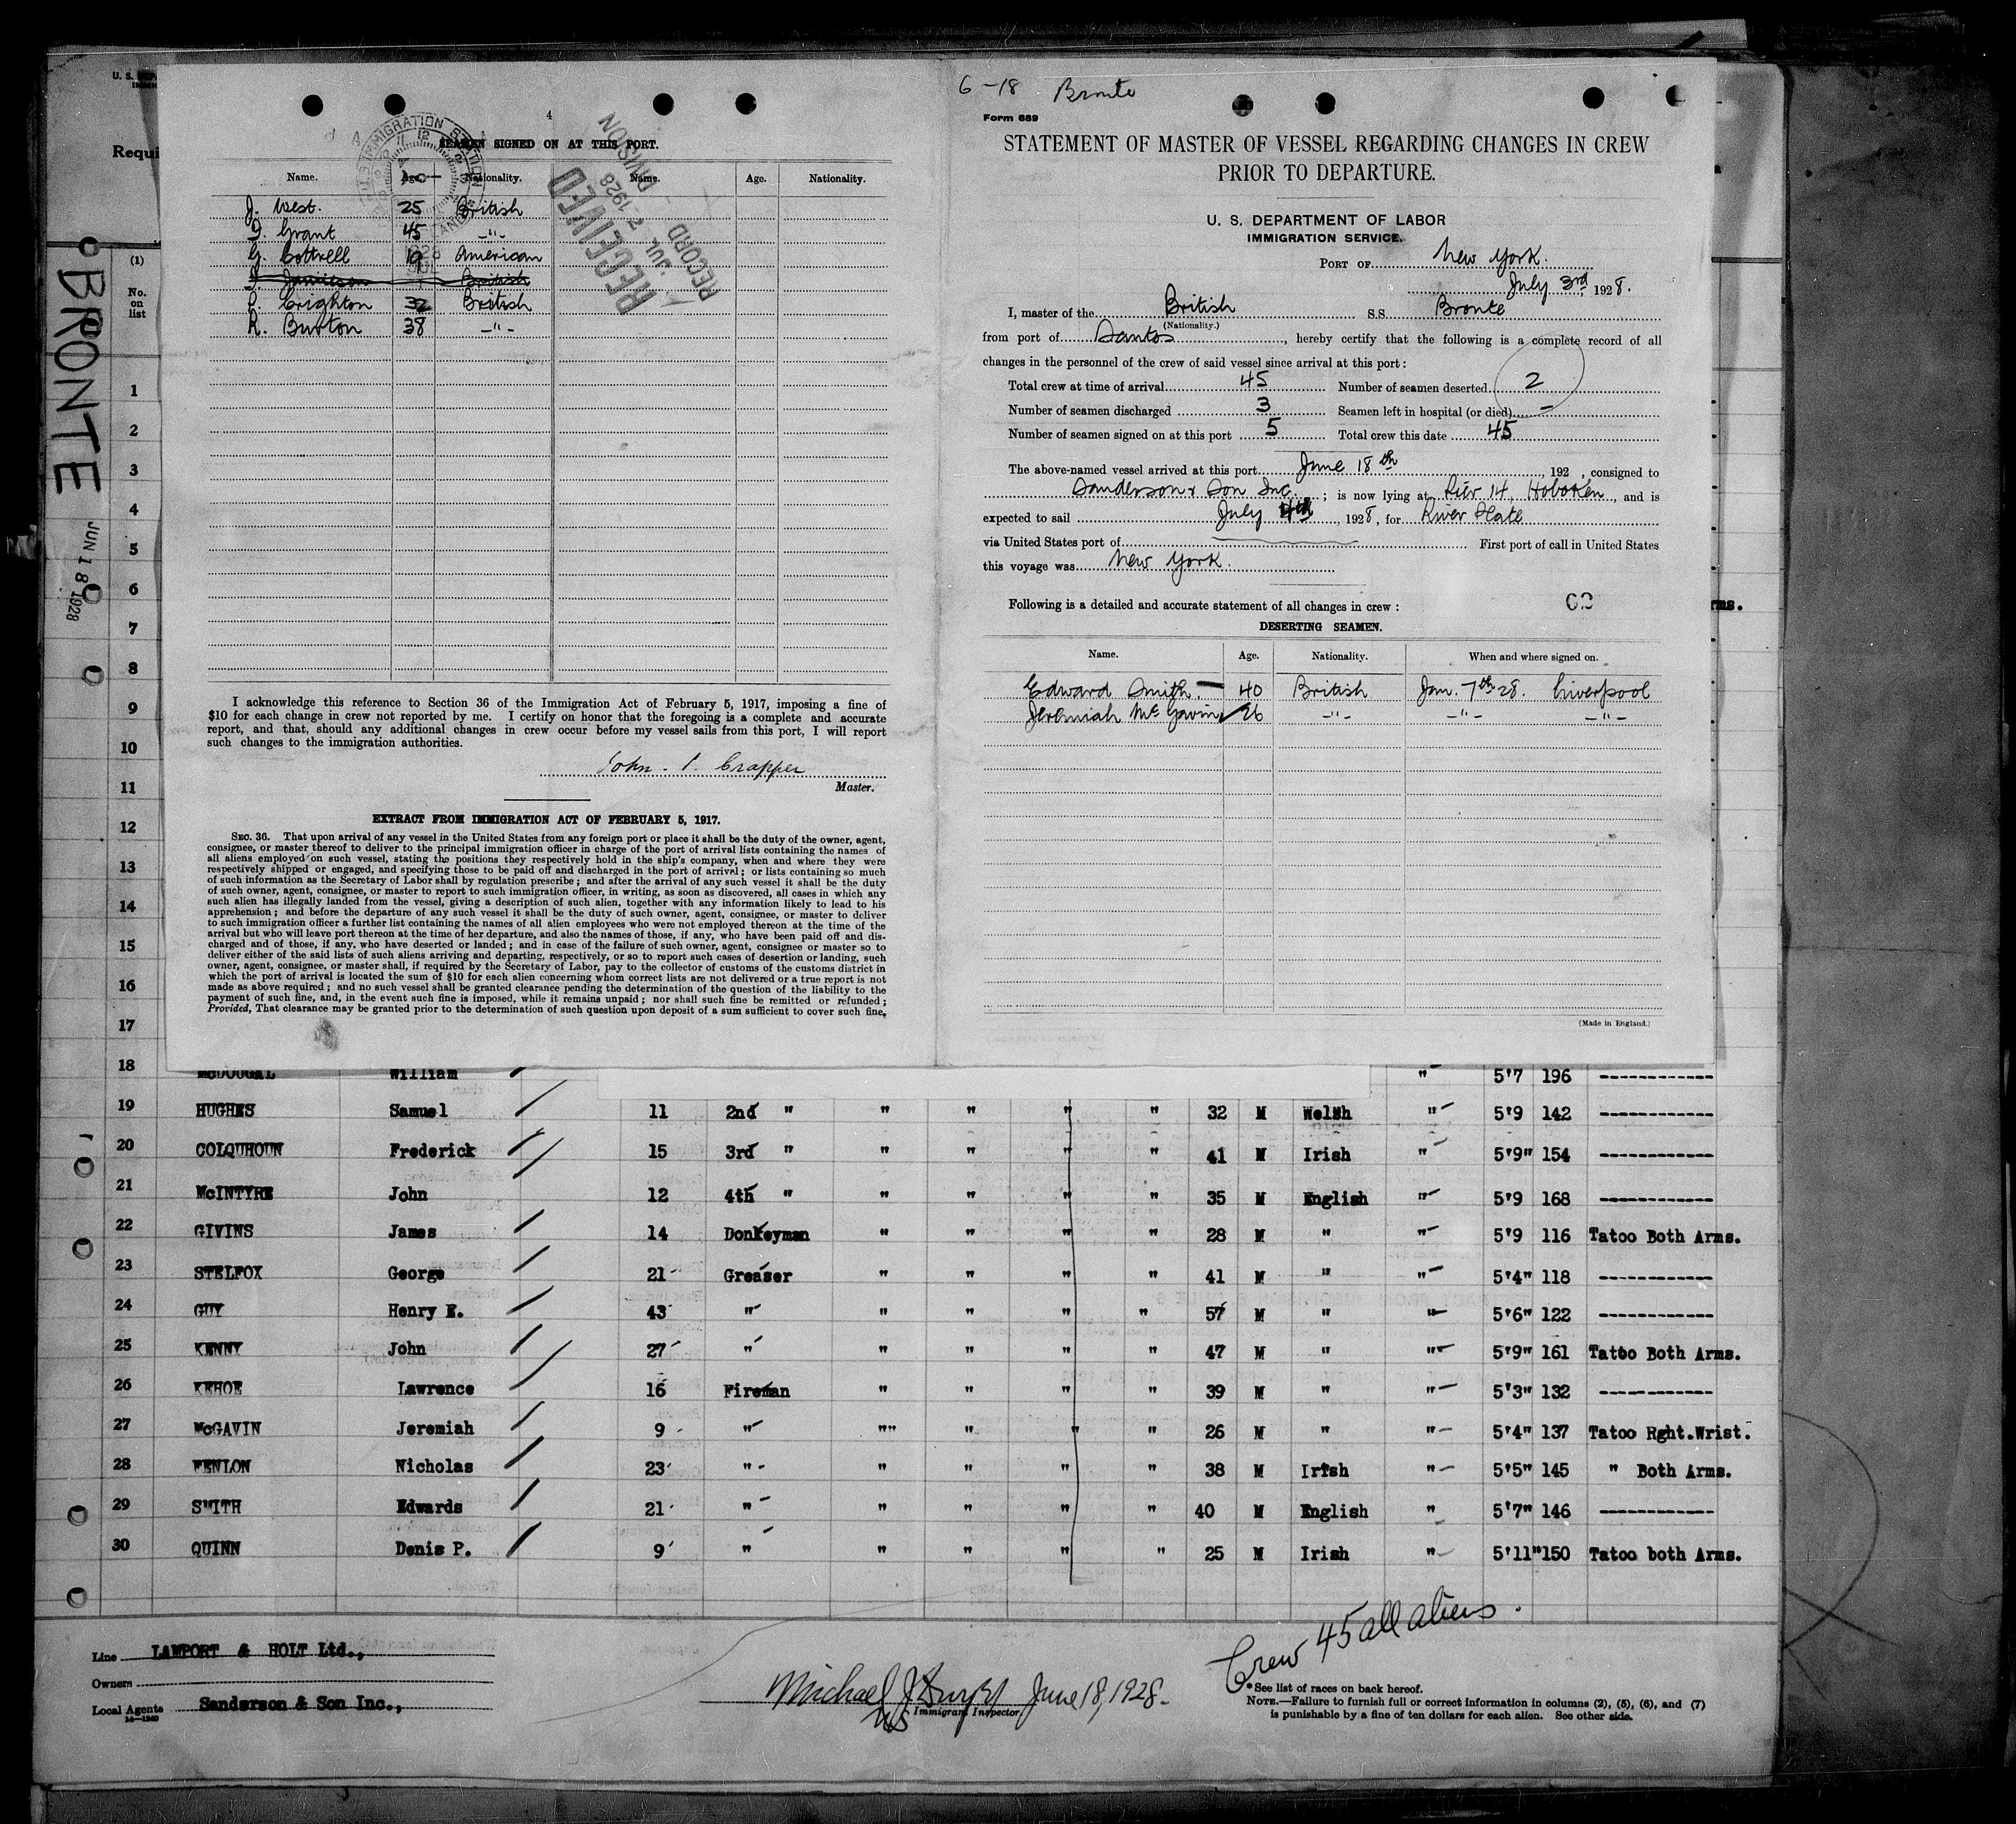 U. S.
Requi
(1)
No.
on
list
BRONTE
JUN 18 1928
4
SEAMEN SIGNED ON AT THIS PORT.
U.S. IMMIGRATION STATION
RECEIVED
JUL 2 1928
RECORD DIVISION
Name. Age. Nationality. Name. Age. Nationality.
J. West. 25 British
G. Grant 45 -"-
G. Cottrell 19 American
Jamieson British
C. Crighton 32 British
R. Burton 38 -"-
I acknowledge this reference to Section 36 of the Immigration Act of February 5, 1917, imposing a fine of
$10 for each change in crew not reported by me. I certify on honor that the foregoing is a complete and accurate
report, and that, should any additional changes in crew occur before my vessel sails from this port, I will report
such changes to the immigration authorities.
John. P. Crapper
Master.
EXTRACT FROM IMMIGRATION ACT OF FEBRUARY 5, 1917.
SEC. 36. That upon arrival of any vessel in the United States from any foreign port or place it shall be the duty of the owner, agent,
consignee, or master thereof to deliver to the principal immigration officer in charge of the port of arrival lists containing the names of
all aliens employed on such vessel, stating the positions they respectively hold in the ship's company, when and where they were
respectively shipped or engaged, and specifying those to be paid off and discharged in the port of arrival; or lists containing so much
of such information as the Secretary of Labor shall by regulation prescribe; and after the arrival of any such vessel it shall be the duty
of such owner, agent, consignee, or master to report to such immigration officer, in writing, as soon as discovered, all cases in which any
such alien has illegally landed from the vessel, giving a description of such alien, together with any information likely to lead to his
apprehension; and before the departure of any such vessel it shall be the duty of such owner, agent, consignee, or master to deliver
to such immigration officer a further list containing the names of all alien employees who were not employed thereon at the time of the
arrival but who will leave port thereon at the time of her departure, and also the names of those, if any, who have been paid off and dis-
charged and of those, if any, who have deserted or landed; and in case of the failure of such owner, agent, consignee or master so to
deliver either of the said lists of such aliens arriving and departing, respectively, or so to report such cases of desertion or landing, such
owner, agent, consignee, or master shall, if required by the Secretary of Labor, pay to the collector of customs of the customs district in
which the port of arrival is located the sum of $10 for each alien concerning whom correct lists are not delivered or a true report is not
made as above required; and no such vessel shall be granted clearance pending the determination of the question of the liability to the
payment of such fine, and, in the event such fine is imposed, while it remains unpaid; nor shall such fine be remitted or refunded;
Provided, That clearance may be granted prior to the determination of such question upon deposit of a sum sufficient to cover such fine,
6-18 Bronte
Form 689
STATEMENT OF MASTER OF VESSEL REGARDING CHANGES IN CREW
PRIOR TO DEPARTURE.
U. S. DEPARTMENT OF LABOR
IMMIGRATION SERVICE.
PORT OF New York.
July 3rd, 1928.
I, master of the British S.S. Bronte
(Nationality.)
from port of Santos, hereby certify that the following is a complete record of all
changes in the personnel of the crew of said vessel since arrival at this port:
Total crew at time of arrival 45 Number of seamen deserted 2
Number of seamen discharged 3 Seamen left in hospital (or died) -
Number of seamen signed on at this port 5 Total crew this date 45
The above-named vessel arrived at this port June 18th, 192 , consigned to
Sanderson & Son Inc. ; is now lying at Pier 14, Hoboken, and is
expected to sail July 4th, 1928, for River Plate
via United States port of First port of call in United States
this voyage was New York.
Following is a detailed and accurate statement of all changes in crew:
DESERTING SEAMEN.
Name. Age. Nationality. When and where signed on.
Edward Smith. 40 British Jan. 7th 28. Liverpool
Jeremiah McGavin 26 -"- -"- -"-
(Made in England.)
1
2
3
4
5
6
7
8
9
10
11
12
13
14
15
16
17
18 McDOUGAL William " 5'7 196 ------------
19 HUGHES Samuel 11 2nd " " " " " 32 M Welsh " 5'9 142 ------------
20 COLQUHOUN Frederick 15 3rd " " " " " 41 M Irish " 5'9" 154 ------------
21 McINTYRE John 12 4th " " " " " 35 M English " 5'9 168 ------------
22 GIVINS James 14 Donkeyman " " " " 28 M " " 5'9 116 Tatoo Both Arms.
23 STELFOX George 21 Greaser " " " " 41 M " " 5'4" 118 ------------
24 GUY Henry E. 43 " " " " " 57 M " " 5'6" 122 ------------
25 KENNY John 27 " " " " " 47 M " " 5'9" 161 Tatoo Both Arms.
26 KEHOE Lawrence 16 Fireman " " " " 39 M " " 5'3" 132 ------------
27 McGAVIN Jeremiah 9 " "" " " " 26 M " " 5'4" 137 Tatoo Rght.Wrist.
28 FENLON Nicholas 23 " " " " " 38 M Irish " 5'5" 145 " Both Arms.
29 SMITH Edwards 21 " " " " " 40 M English " 5'7" 146 ------------
30 QUINN Denis P. 9 " " " " " 25 M Irish " 5'11" 150 Tatoo both Arms.
Crew 45 all aliens.
Line LAMPORT & HOLT Ltd.,
Owners
Local Agents Sanderson & Son Inc.,
14-1240
Michael J. June 18, 1928.
Immigrant Inspector
*See list of races on back hereof.
NOTE.—Failure to furnish full or correct information in columns (2), (5), (6), and (7)
is punishable by a fine of ten dollars for each alien. See other side.